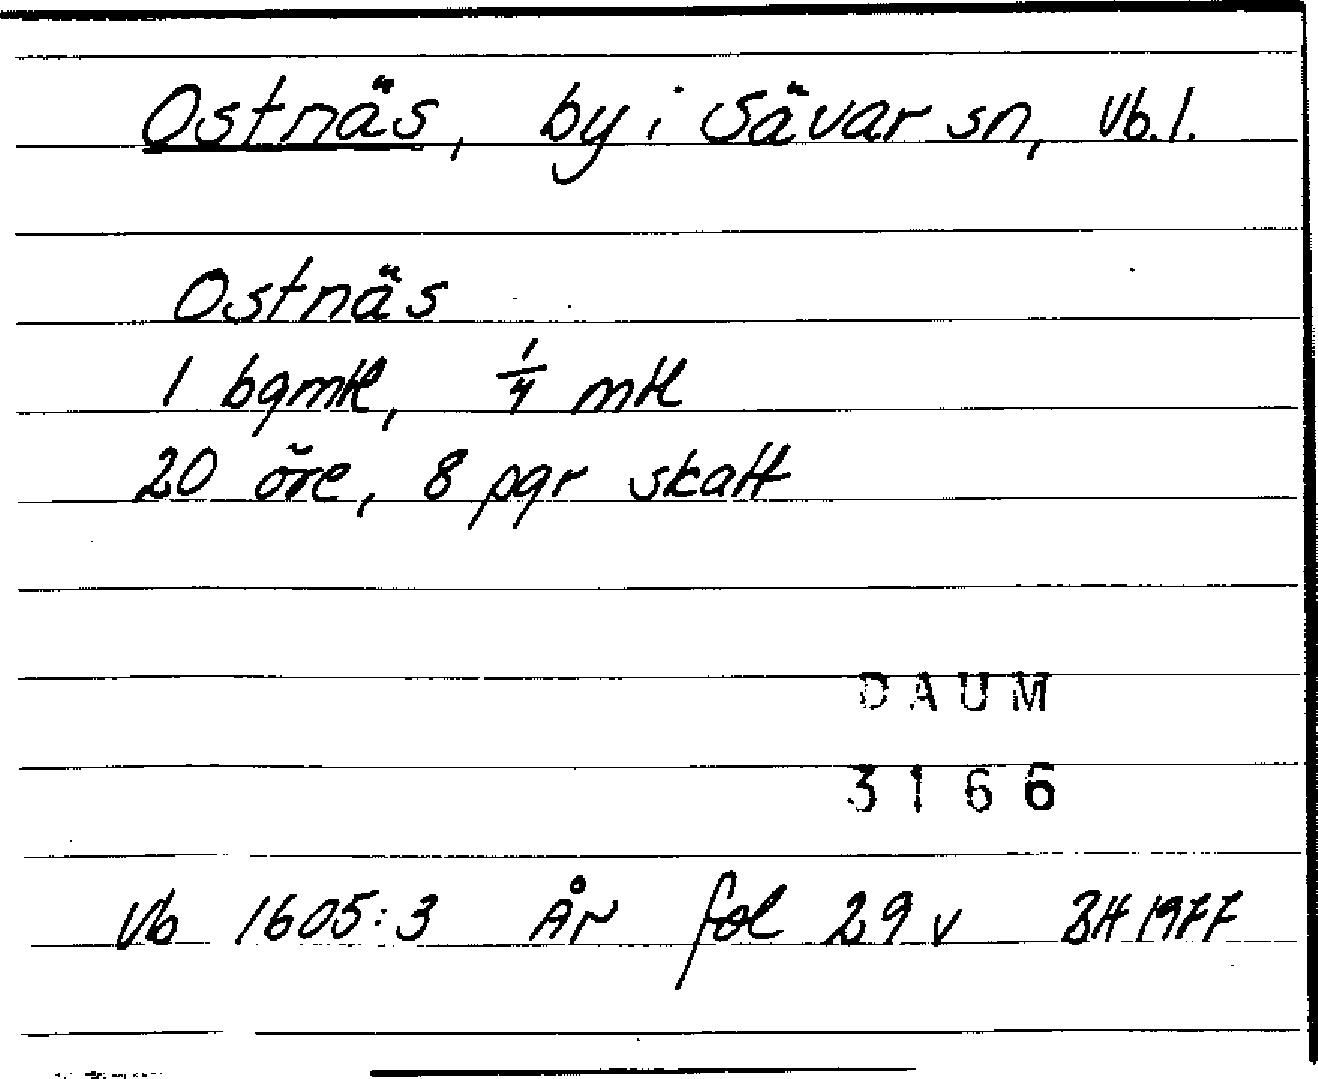 Ostnäs, by i Sävar sn, Vb.l.
Ostnäs
1 bgmtl, 1/4 mtl
20 öre, 8 pgr skatt
DAUM
3166
Vb 1605:3 År fol 29 v BH 1977